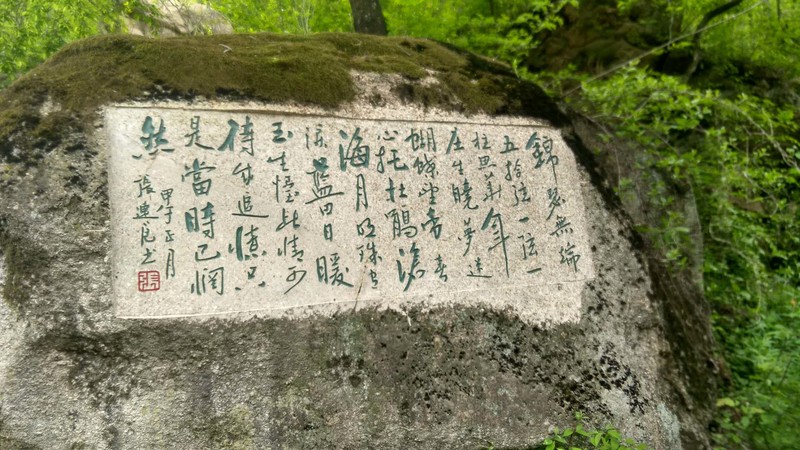 錦瑟無端
五拾弦一弦一
柱思華年
庄生曉夢迷
蝴蝶望帝春
心托杜鵑滄
海月明珠有
淚藍田日暖
玉生煙此情可
待成追憶只
是當時已惘
然
甲午月
張
張